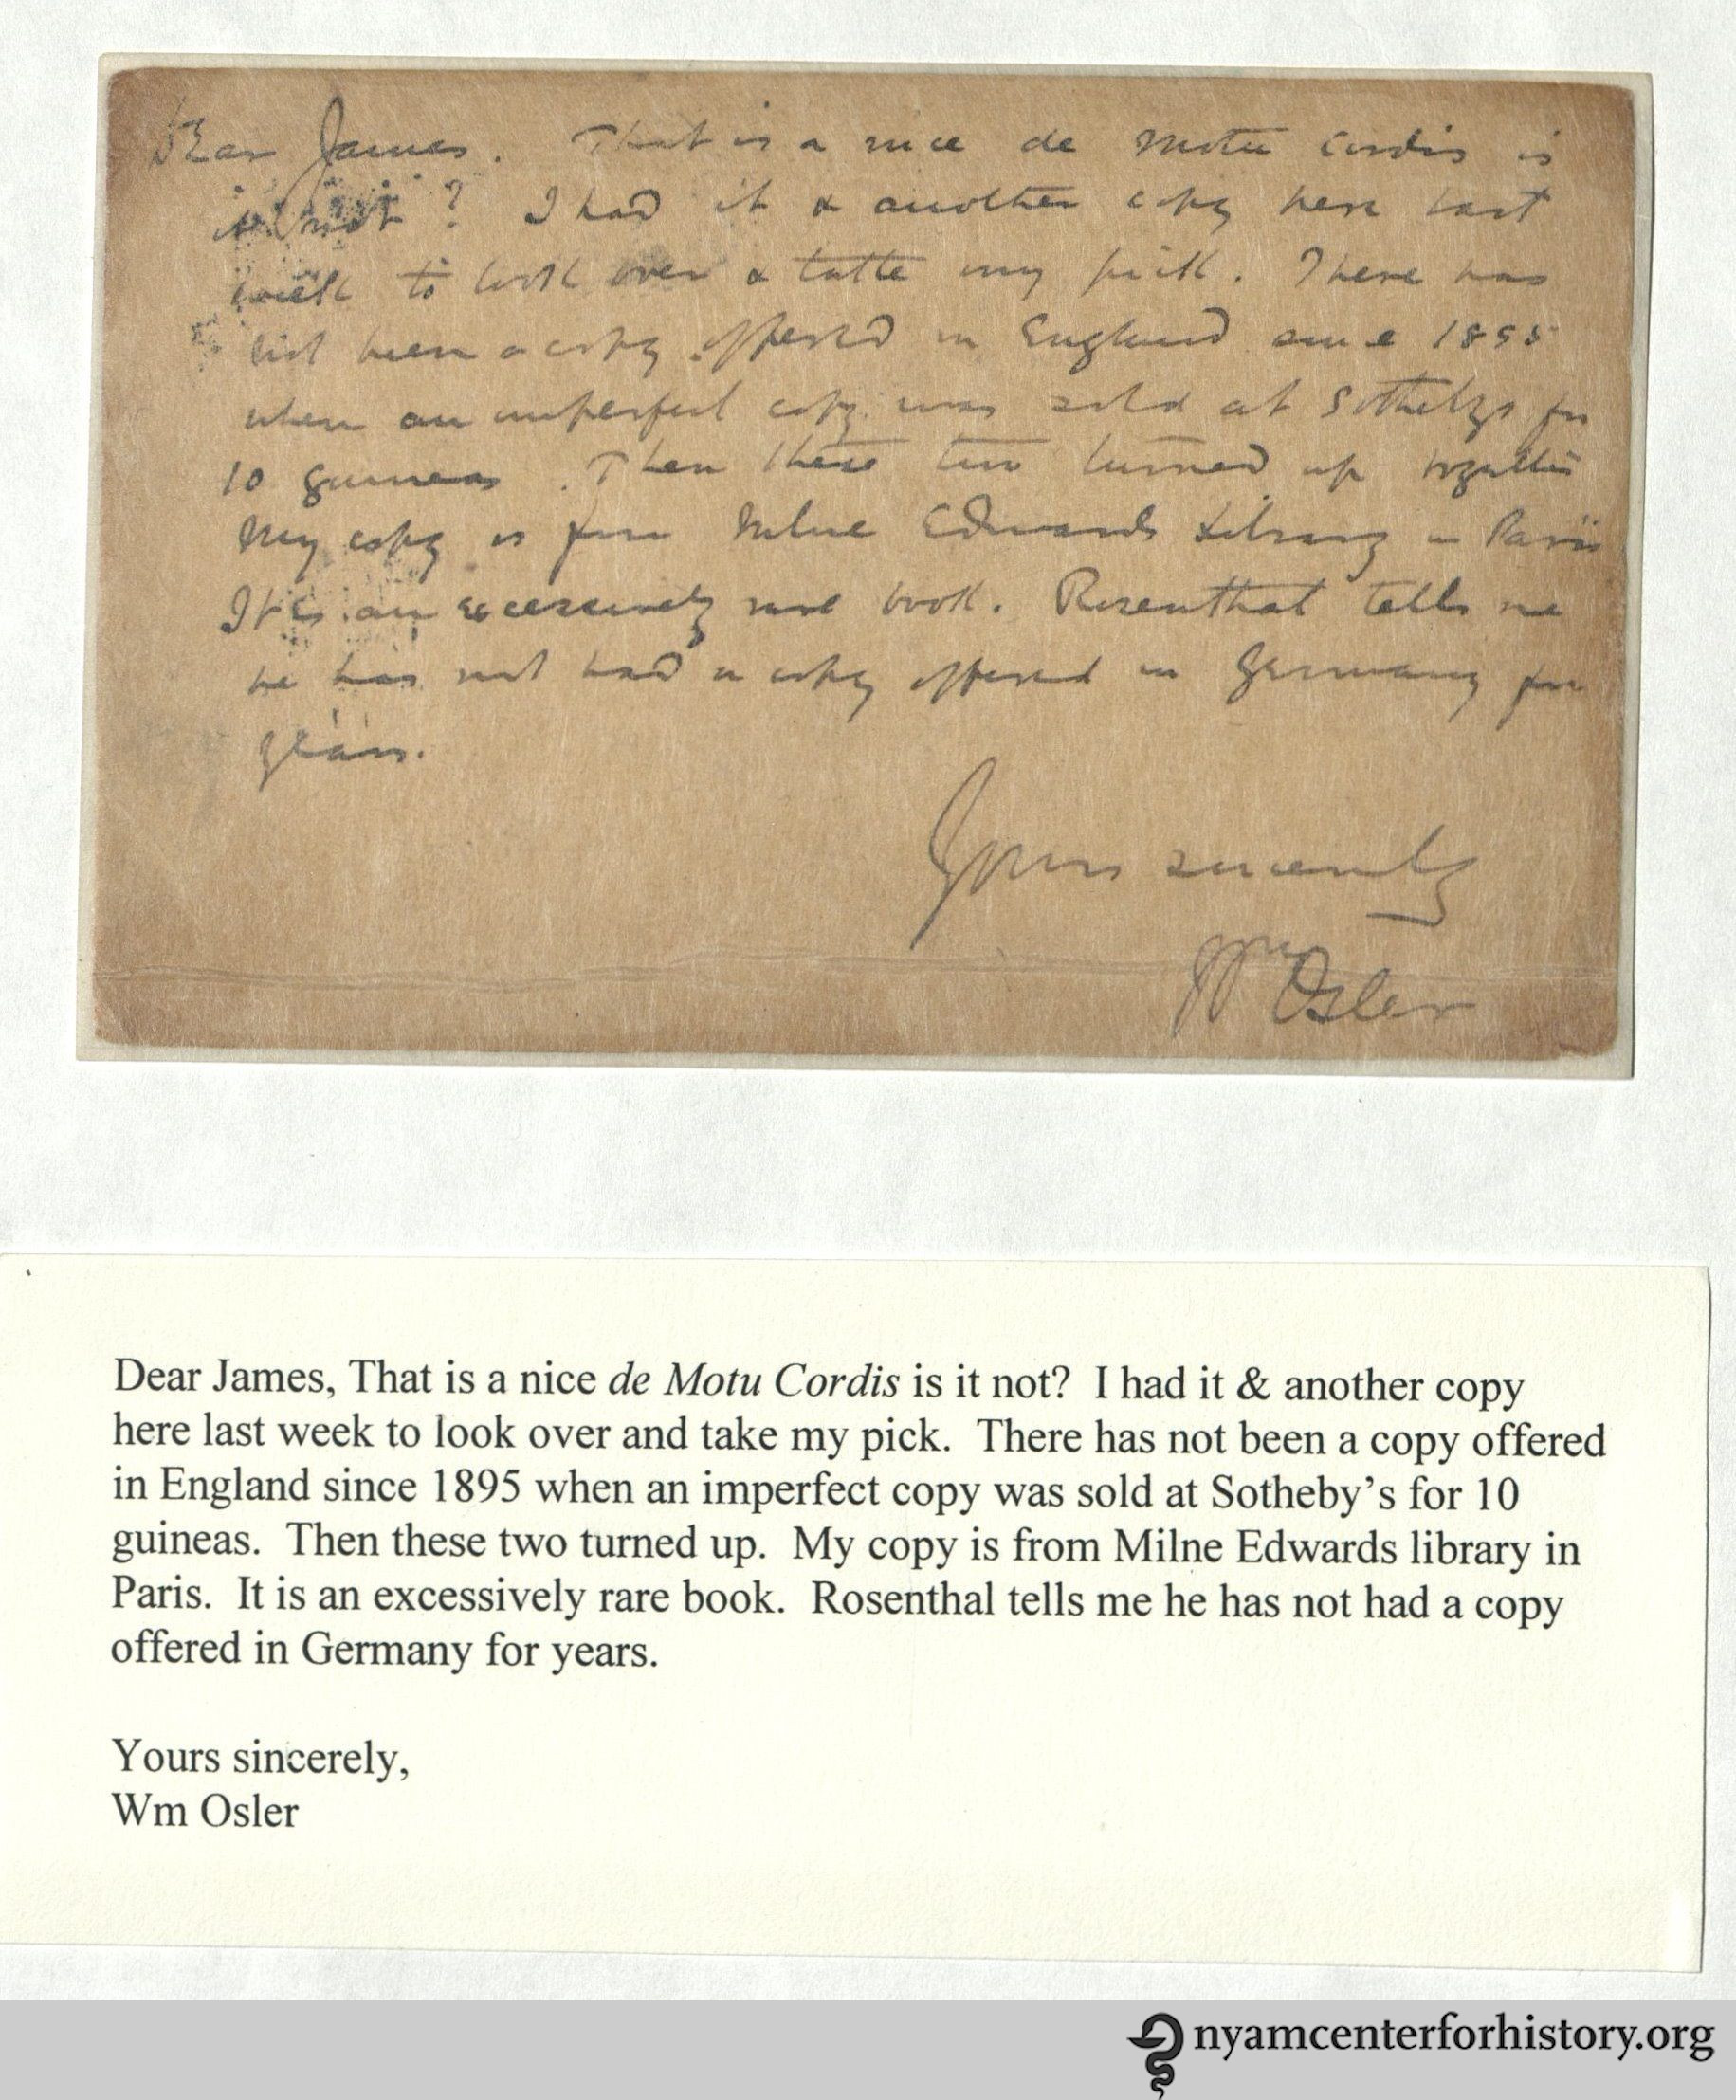 Dear James. That is a nice de Motu Cordis is
it not? I had it & another copy here last
week to look over & take my pick. There has
not been a copy offered in England since 1895
when an imperfect copy was sold at Sothebys for
10 guineas. Then these two turned up together
My copy is from Milne Edwards Library in Paris
It is an excessively rare book. Rosenthal tells me
he has not had a copy offered in Germany for
years.
Yours sincerely
Wm Osler
Dear James, That is a nice de Motu Cordis is it not? I had it & another copy
here last week to look over and take my pick. There has not been a copy offered
in England since 1895 when an imperfect copy was sold at Sotheby’s for 10
guineas. Then these two turned up. My copy is from Milne Edwards library in
Paris. It is an excessively rare book. Rosenthal tells me he has not had a copy
offered in Germany for years.
Yours sincerely,
Wm Osler
nyamcenterforhistory.org